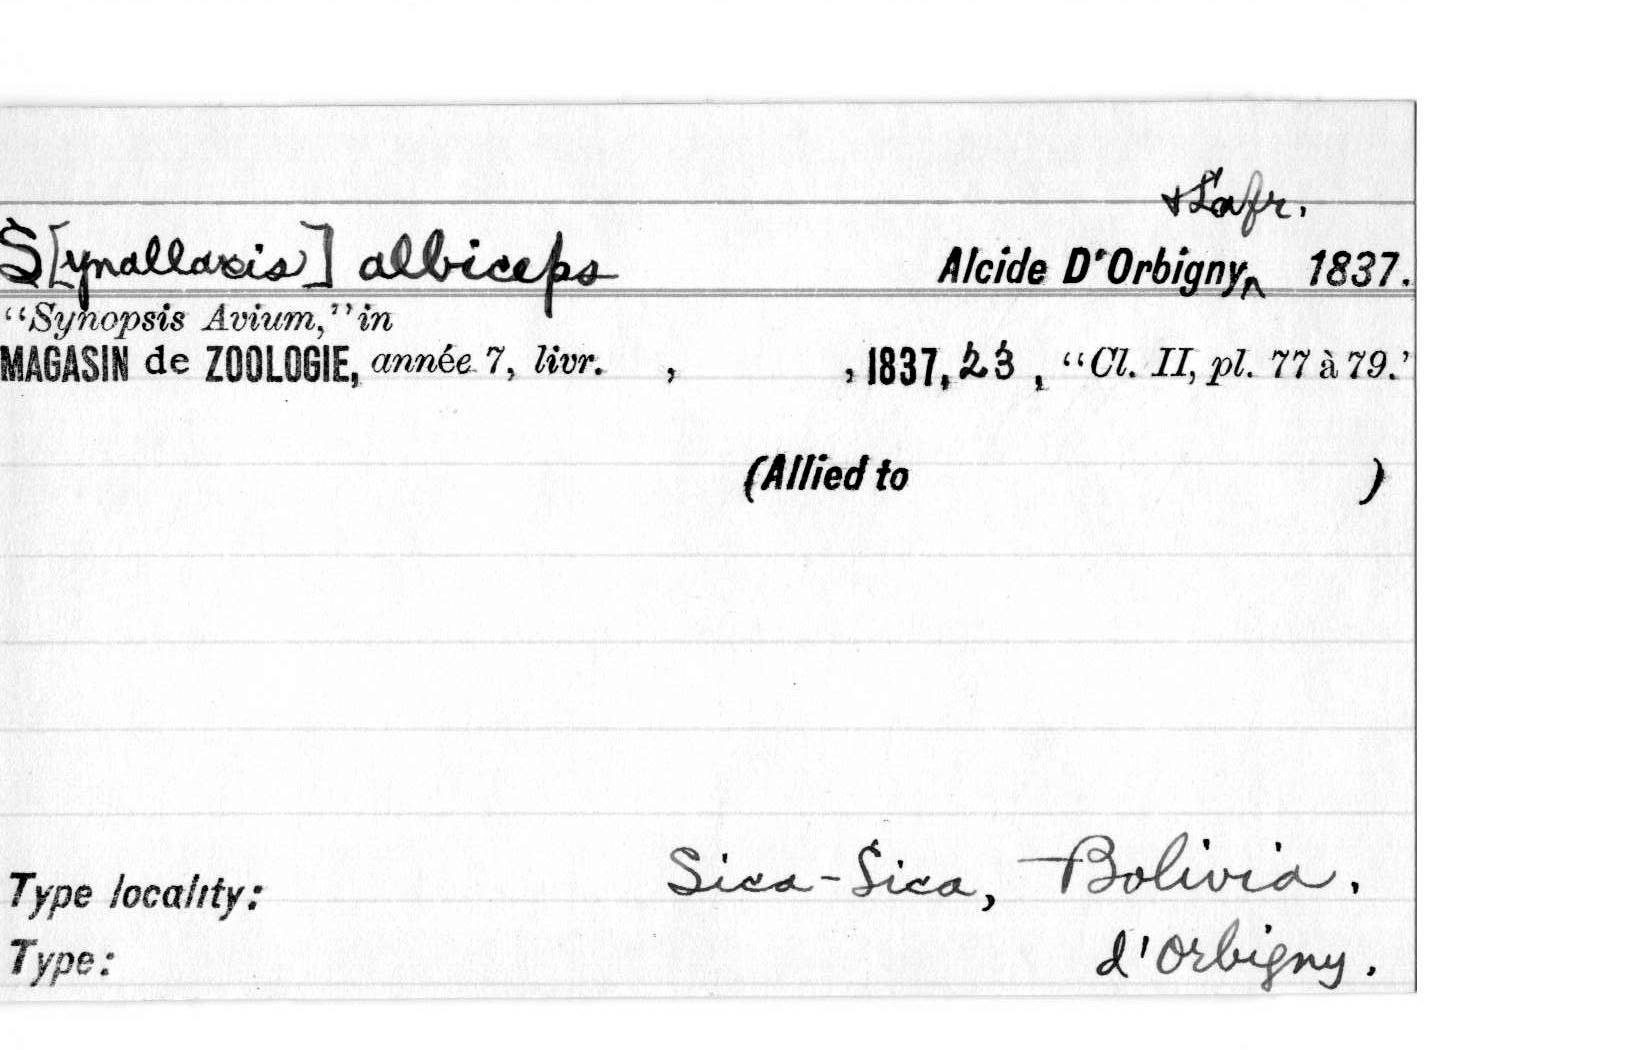 & Lafr.
S[ynallaxis] albiceps Alcide D'Orbigny^ 1837.
“Synopsis Avium,” in
MAGASIN de ZOOLOGIE, année 7, livr. , , 1837, 23, “Cl. II, pl. 77 à 79.’
(Allied to )
Type locality: Sica-Sica, Bolivia.
Type: d'Orbigny.